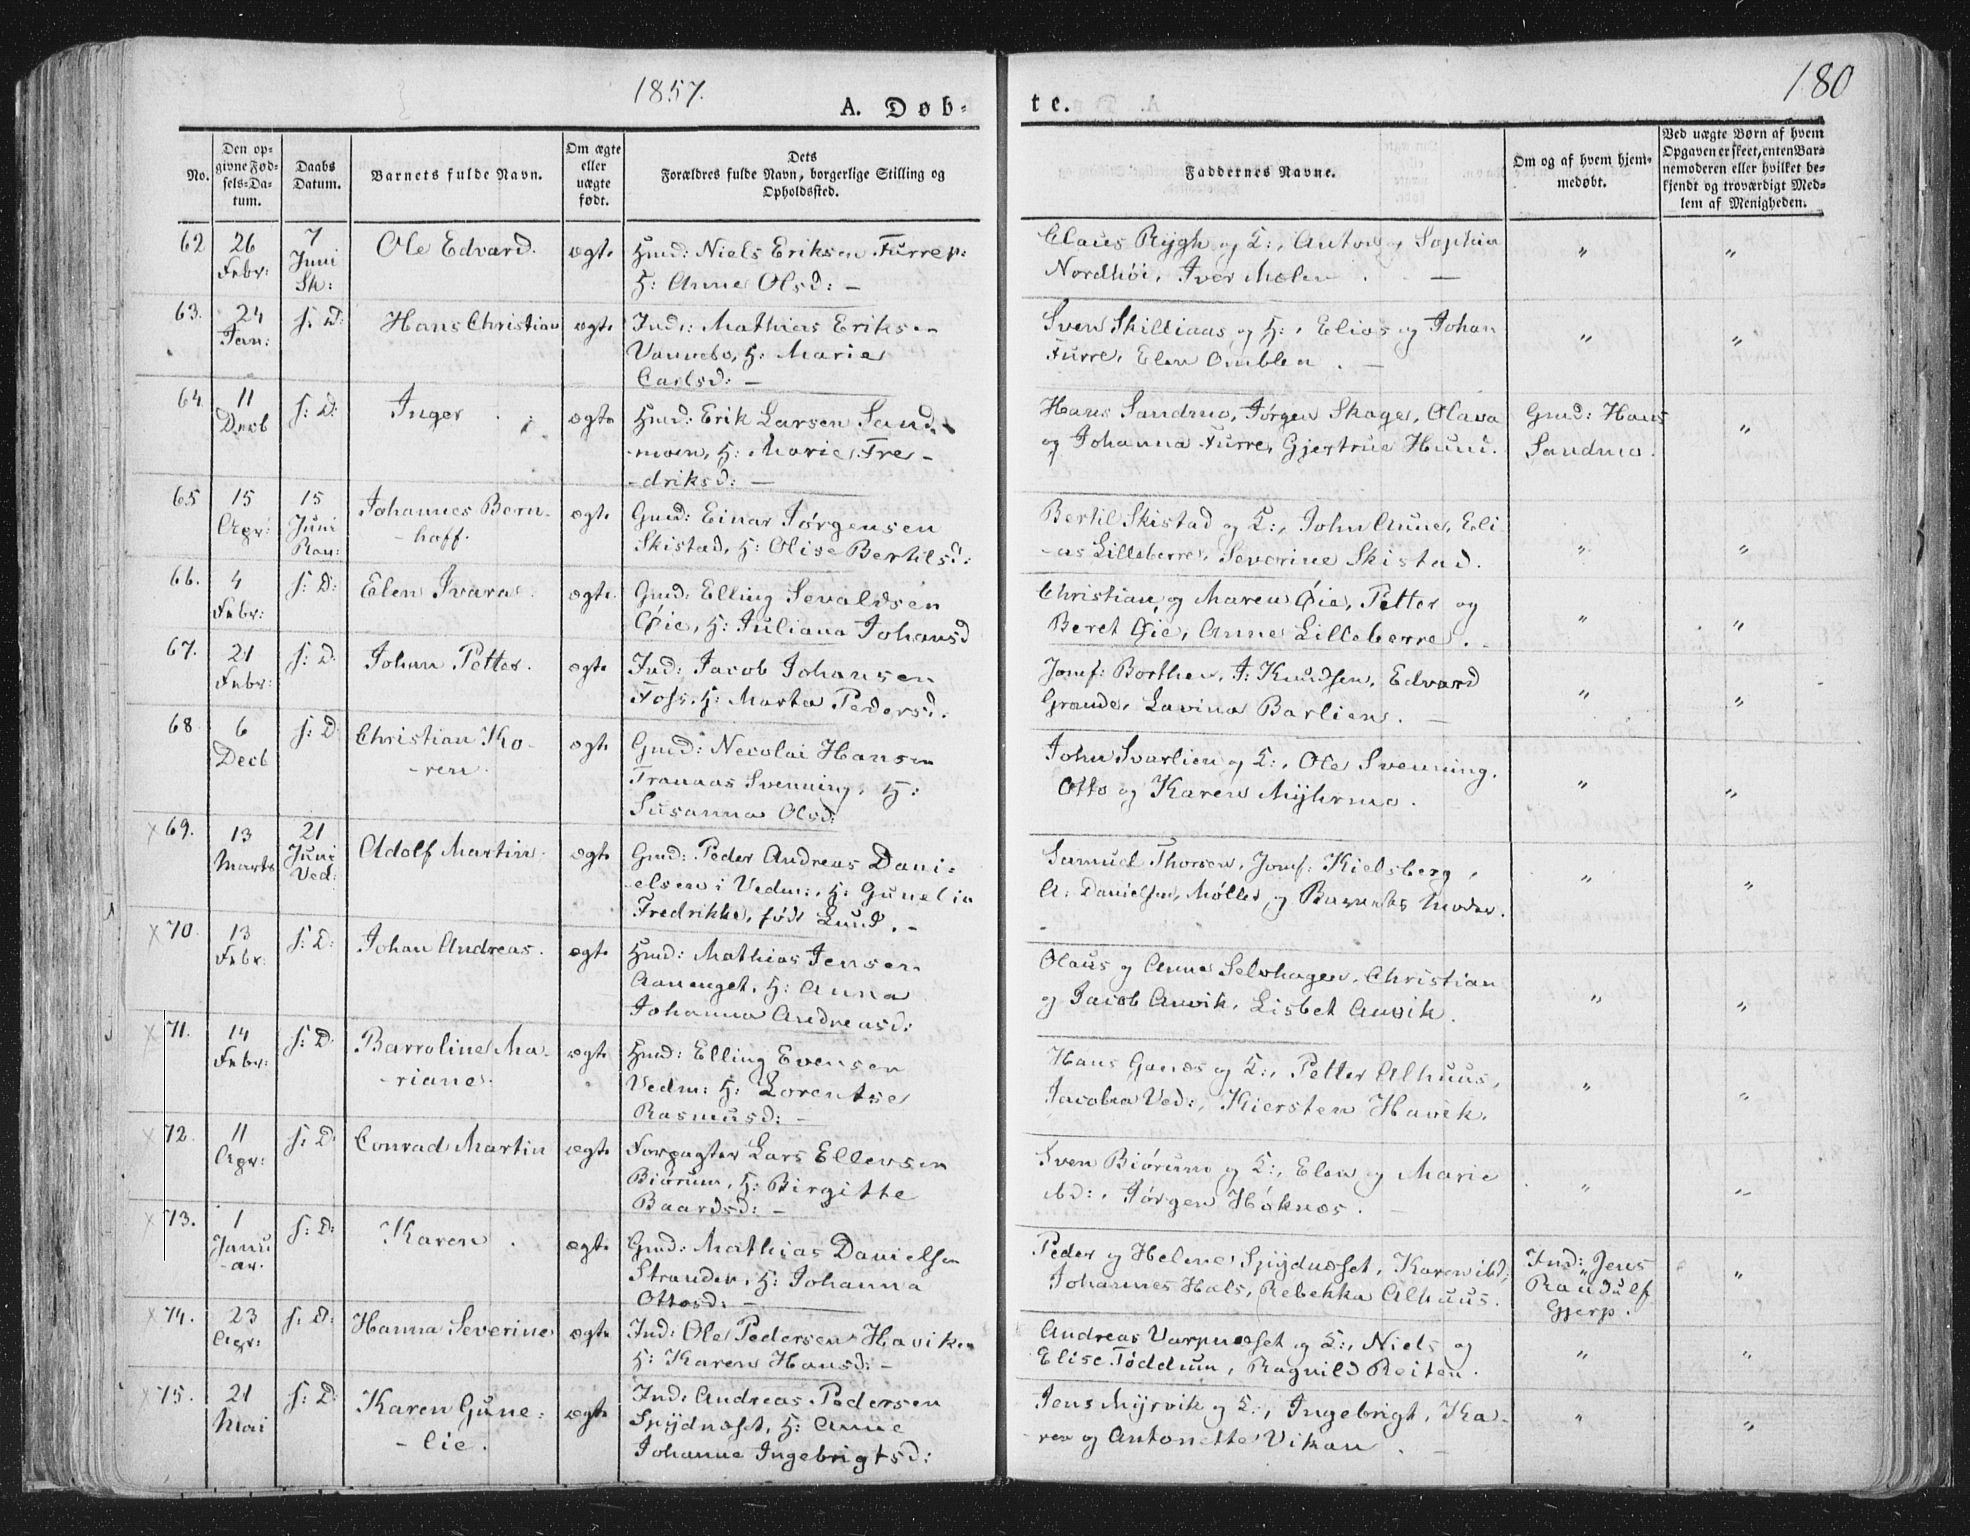 1857.
180
A. Døb-
te.
No.
Den op-
givne Fød-
sels-Da-
tum.
Daabs
Datum.
Barnets fulde Navn.
Om ægte
eller
uægte
født.
Dets
Forældres fulde Navn, borgerlige Stilling og
Opholdssted.
Faddernes Navne.
Om og af hvem hjem-
medøbt.
Ved uægte Børn af hvem
Opgaven er skeet, enten Bar-
nemoderen eller hvilket be-
kjendt og troværdigt Med-
lem af Menigheden.
62
26
Febr:
7
Juni
Sk:
Ole Edvard.
ægte
Hmd: Niels Eriksen Furrep:
H: Anne Olsd: -
Claus Rygh og K:, Anton og Sophia
Nordhøi, Iver Mølen. -
"
"
63.
24
Jan:
s: D:
Hans Christian
ægte
Ind: Mathias Eriksen
Vannebo, H: Marie
Carlsd: -
Sven Skilliaas og H:, Elias og Johan
Furre, Elen Omblen. -
"
"
64.
11
Decb
s: D:
Inger
ægte
Hmd: Erik Larsen Sand-
-moen, H: Marie Fre-
-driksd: -
Hans Sandmo, Jørgen Skage, Olava
og Johanna Furre, Gjertrue Hund.
Gmd: Hans
Sandmo.
"
65
15
Apr:
15
Juni
Ran:
Johannes Bern-
-hoff.
ægte
Gmd: Einar Jørgensen
Skistad, H: Olise Bertilsd:
Bertil Skistad og K:, John Aune, Eli-
-as Lilleberre, Severine Skistad.
"
"
66.
4
Febr:
s: D:
Elen Ivara.
ægte
Gmd: Elling Sevaldsen
Øie, H: Juliana Johansd
Christian og Maren Øie, Petter og
Beret Øie, Anne Lilleberre.
"
"
67.
21
Febr:
s: D.
Johan Petter.
ægte
Ind: Jacob Johansen
Foss, H: Marta Pedersd.
Jomf: Borthen, J: Knudsen, Edvard
Grande, Lavina Barlien. -
"
"
68
6
Decb
s: D:
Christian Ko-
-ren.
ægte
Gmd: Necolai Hansen
Tranaas Svenning, H:
Susanna Olsd:
John Svarlien og K:, Ole Svenning,
Otto og Karen Myhrmo.
"
"
× 69.
13
Marts
21
Juni
Ved:
Adolf Martin.
ægte
Gmd: Peder Andreas Dani-
-elsen i Vedm:, H: Gunelia
Fredrikke, født Lund. -
Samuel Thorsen, Jomf: Kielsberg,
A: Danielsen, Møller og Barnets Moder.
"
"
× 70.
13
Febr:
s: D:
Johan Andreas.
ægte
Hmd: Mathias Jensen
Aavenget, H: Anna
Johanna Andreasd:
Olaus og Anne Selvhagen, Christian
og Jacob Auvik, Lisbet Auvik.
"
"
× 71.
14
Febr:
s: D:
Barroline Ma-
-riane.
ægte
Hmd: Elling Evensen
Vedm: H: Lorentse
Rasmusd: -
Hans Ganæs og K:, Petter Alhuus,
Jacobia Ved:, Kiersten Havik.
"
"
× 72.
11
Apr:
s: D:
Conrad Martin
ægte
Forpagter Lars Ellevsen
Biørum, H: Birgitte
Baardsd: -
Sven Biørum og K:, Elen og Marie
ibd:, Jørgen Høknæs.
"
"
× 73.
1
Janu
-ar.
s: D:
Karen.
ægte
Gmd: Mathias Danielsen
Stranden, H: Johanna
Ottosd: -
Peder og Helene Spydnæset, Karen ibd,
Johannes Hals, Rebekka Alhuus.
Ind: Jens
Randulf
Gjerp.
"
× 74.
23
Apr:
s: D:
Hanna Severine
ægte
Ind: Ole Pedersen Havik,
H: Karen Hansd: -
Andreas Varpneset og K:, Niels og
Elise Føddum, Ragnild Reiten.
"
"
× 75.
21
Mai
s: D:
Karen Gune-
-lie.
ægte
Ind: Andreas Pedersen
Spydnæset, H: Anne
Johanne Ingebrigtsd:
Jens Myrvik og K:, Ingebrigt, Ka-
-ren og Antonette Vikan. -
"
"